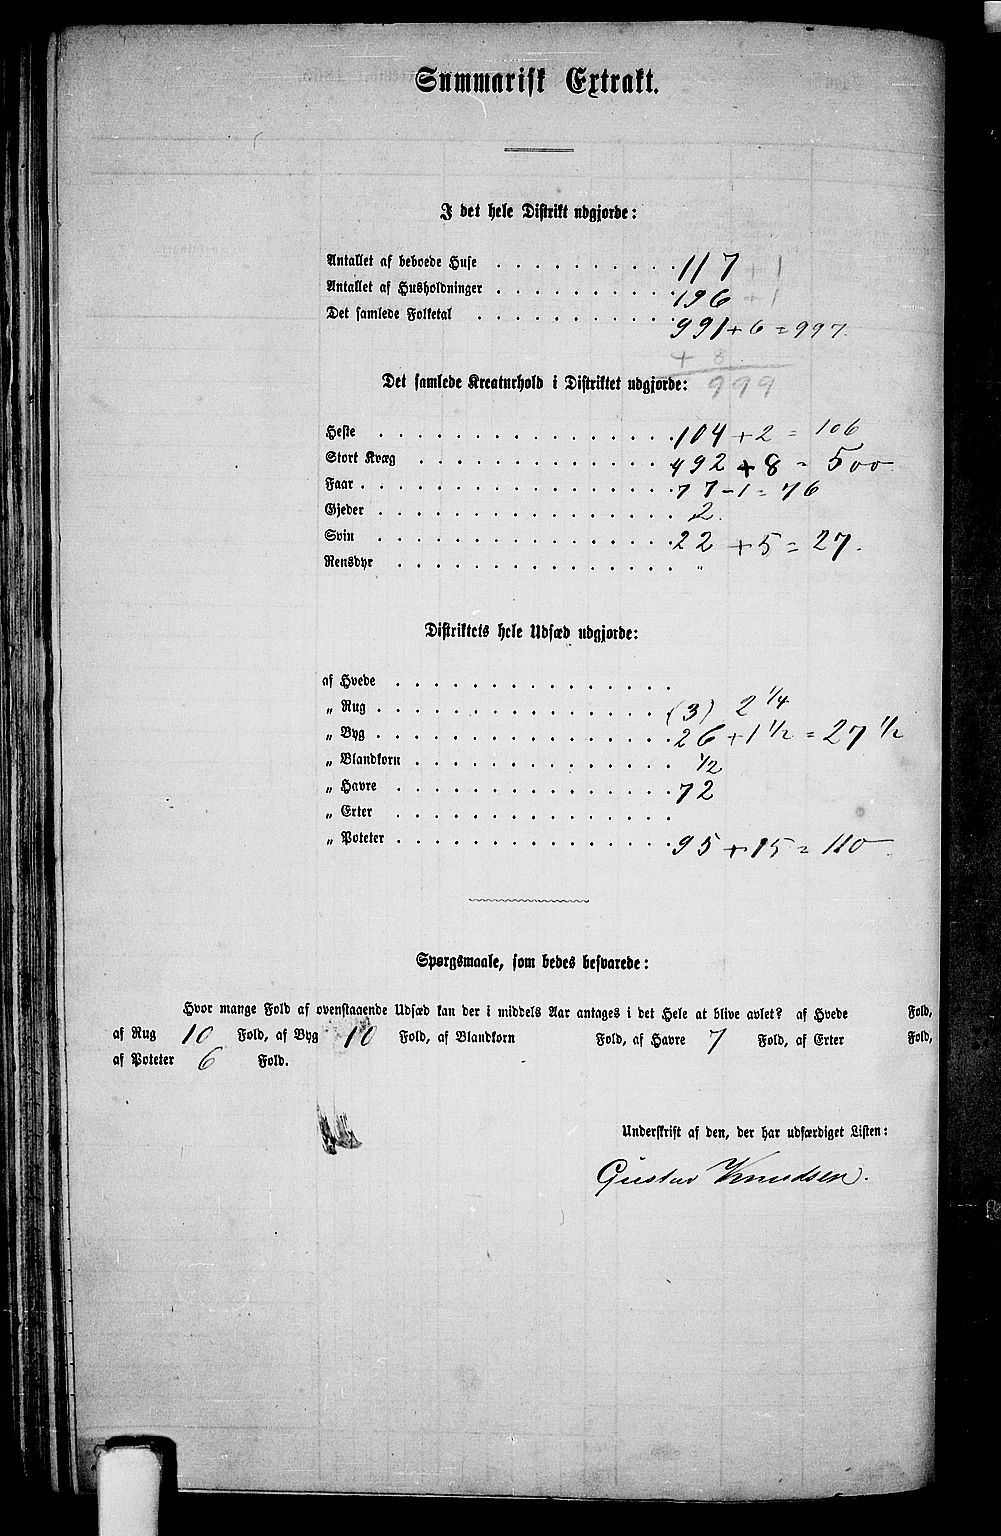 Summarisk Extrakt.
I det hele Distrikt udgjorde:
Antallet af beboede Huse . . . . . . . . 117 + 1
Antallet af Husholdninger . . . . . . . . 196 + 1
Det samlede Folketal . . . . . . . . 991 + 6 = 997.
+ 3
999
Det samlede Kreaturhold i Distriktet udgjorde:
Heste . . . . . . . . . . . . 104 + 2 = 106
Stort Kvæg . . . . . . . . . . 492 + 8 = 500
Faar . . . . . . . . . . . . . 77 - 1 = 76
Gjeder . . . . . . . . . . . . 2.
Svin . . . . . . . . . . . . 22 + 5 = 27.
Rensdyr . . . . . . . . . . . "
Distriktets hele Udsæd udgjorde:
af Hvede . . . . . . . . . . .
„ Rug . . . . . . . . . . . . (3) 2 1/4
„ Byg . . . . . . . . . . . . 26 + 1 1/2 = 27 1/2
„ Blandkorn . . . . . . . . . . 1/2
„ Havre . . . . . . . . . . . 72
„ Erter . . . . . . . . . . .
„ Poteter . . . . . . . . . . . 95 + 15 = 110
Spørgsmaale, som bedes besvarede:
Hvor mange Fold af ovenstaaende Udsæd kan der i middels Aar antages i det Hele at blive avlet? af Hvede Fold,
af Rug 10 Fold, af Byg 10 Fold, af Blandkorn Fold, af Havre 7 Fold, af Erter Fold,
af Poteter 6 Fold.
Underskrift af den, der har udfærdiget Listen:
Gustav Knudsen.